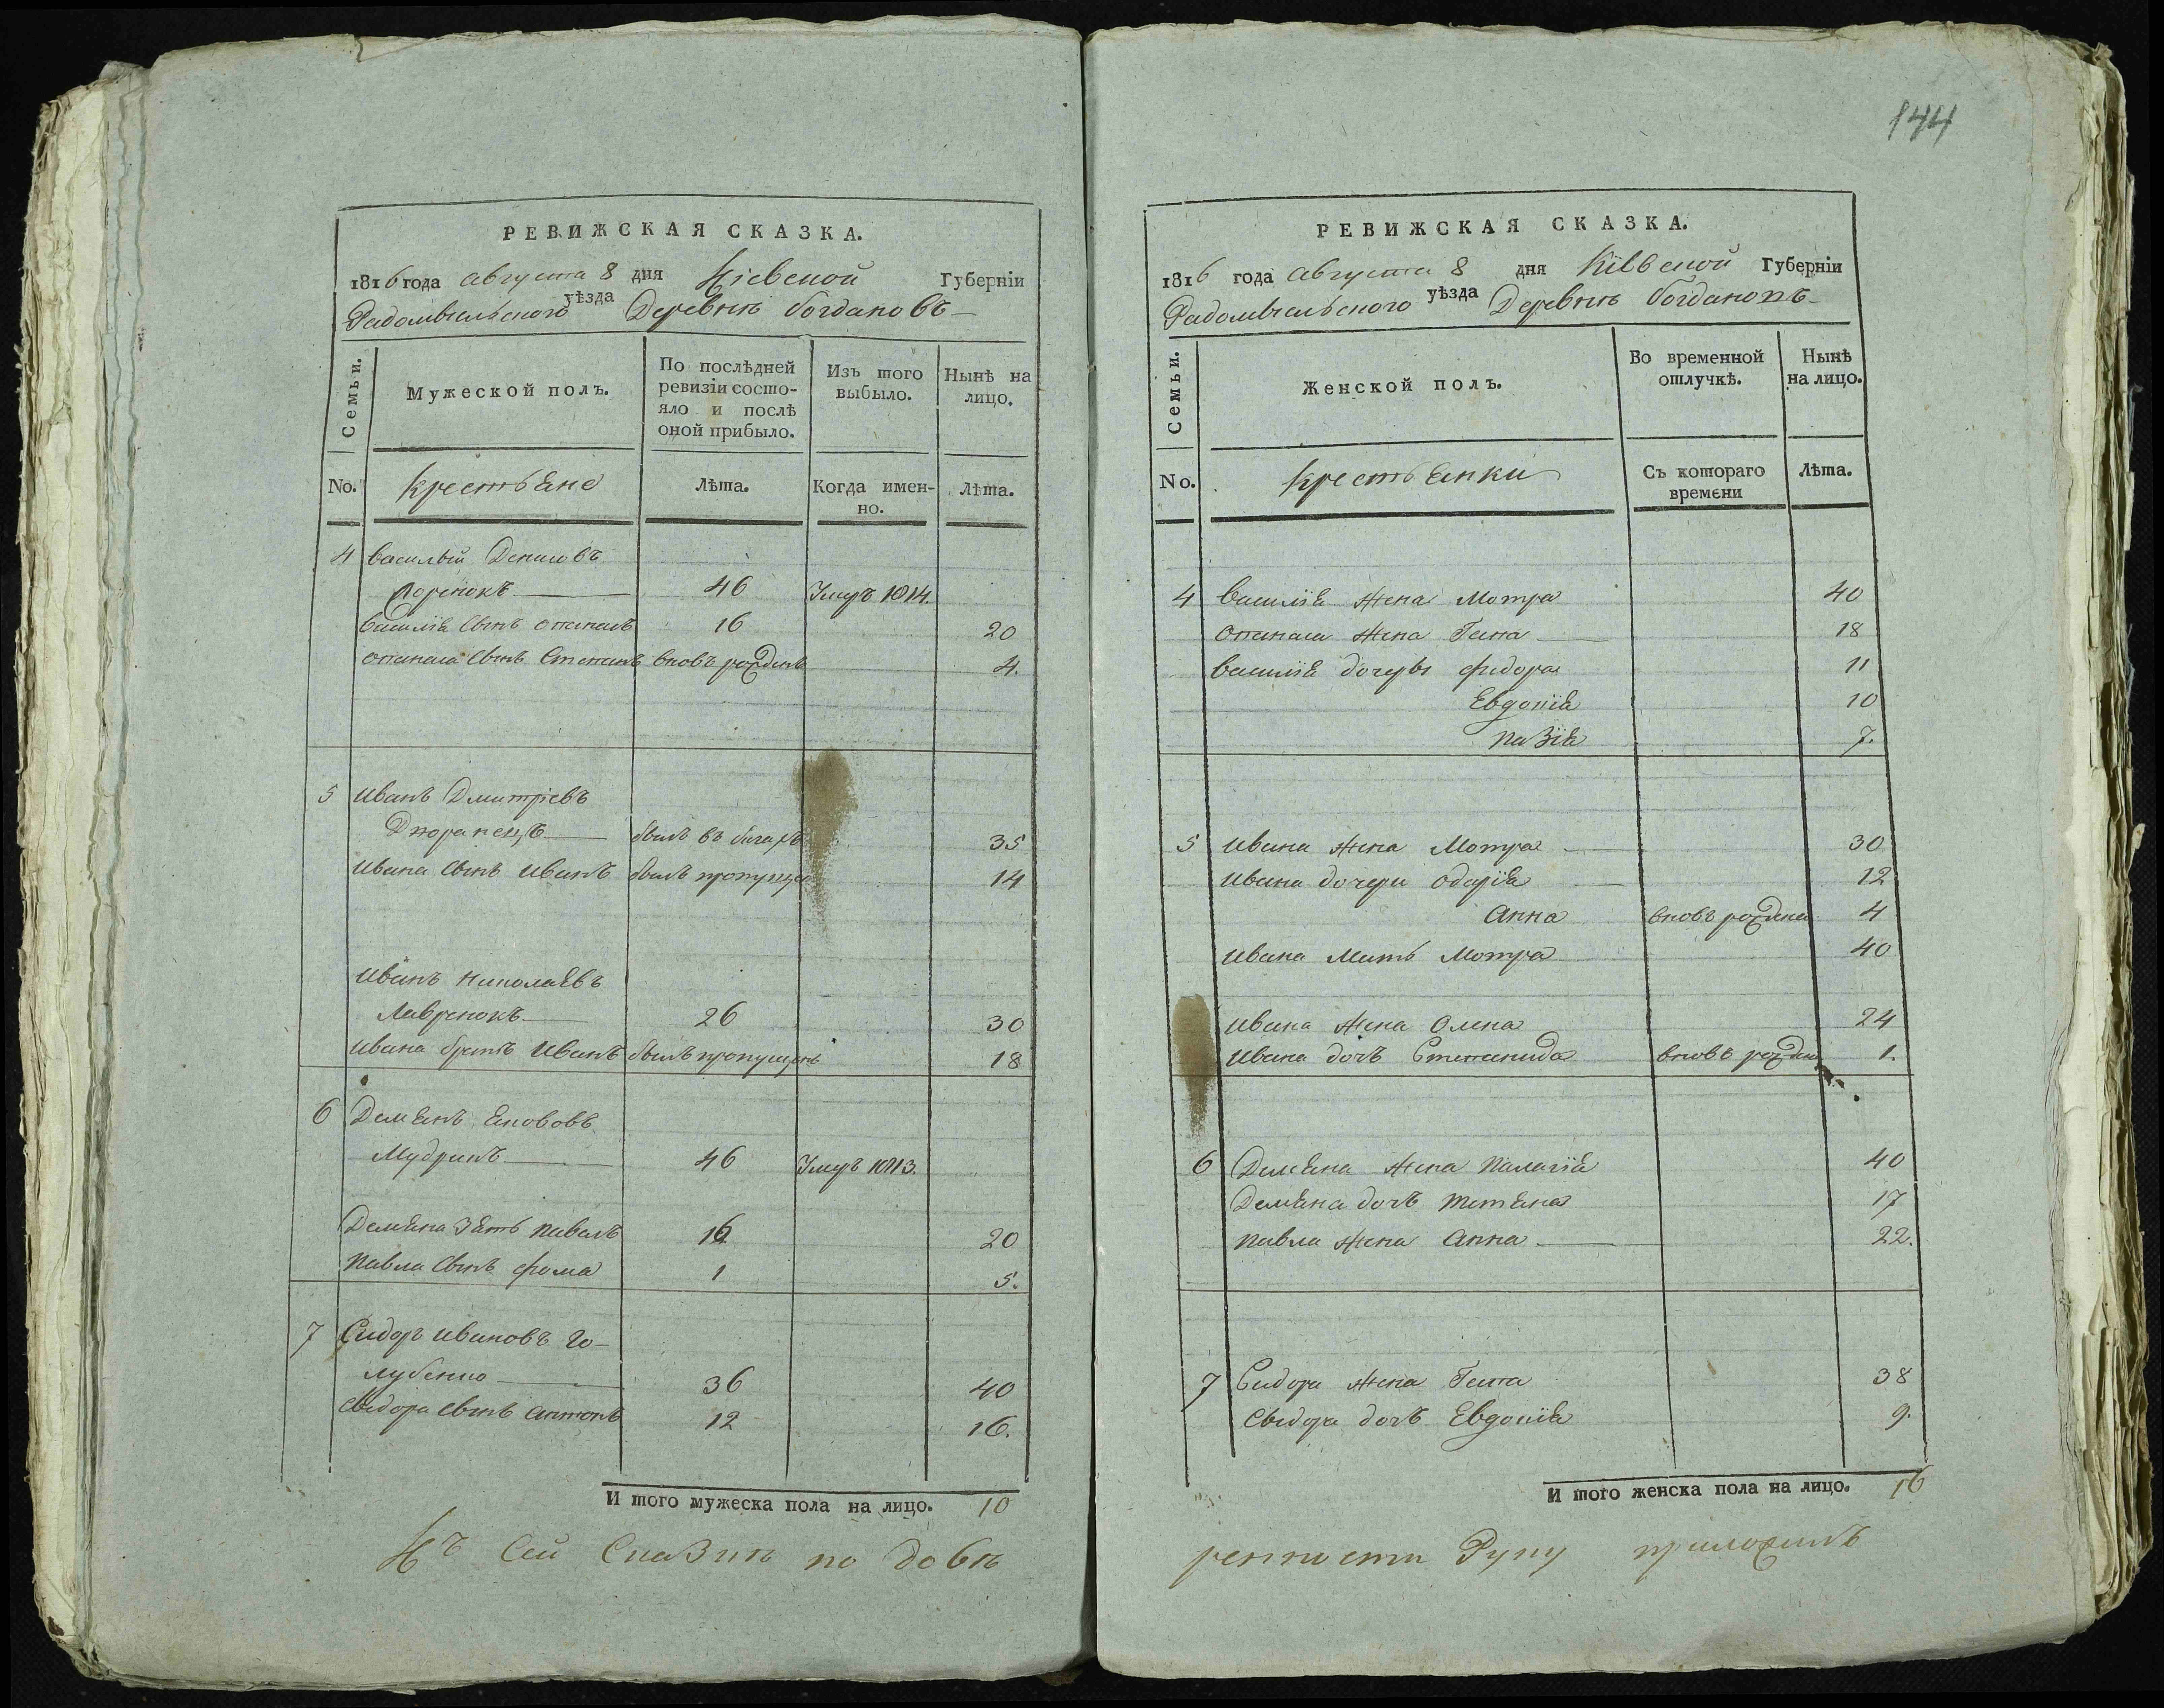 144
РЕВИЖСКАЯ СКАЗКА.
1816 года августа 8 дня Кіевской Губерніи
Радомысльского уѣзда Деревнѣ богдановъ
Семьи.
Мужеской полъ.
По послѣдней
ревизіи состо-
яло и послѣ
оной прибыло.
Изъ того
выбыло.
Нынѣ на
лицо.
No. крестьяне Лѣта. Когда имен-
но.
Лѣта.
4 василій Денисовъ
46 Умръ 1814.
василія сынъ опанасъ 16 20
опанаса сынъ Степанъ вновъ рожденъ 4.
5 иванъ Дмитріевъ
былъ въ бигахъ 35
ивана сынъ иванъ былъ пропущен 14
иванъ николаевъ
Лавренокъ 26 30
ивана братъ иванъ былъ пропущенъ 18
6 Демянъ яковovъ
Мудрикъ 46 Умръ 1813.
Демяна зять павелъ 16 20
павла сынъ фома 1 5.
7 Сидоръ ивановъ Го-
лубенко 36 40
Сидора сынъ антонъ 12 16.
И того мужеска пола на лицо. 10
Къ сей сказкѣ по довѣ
РЕВИЖСКАЯ СКАЗКА.
1816 года августа 8 дня Кіевской Губерніи
Радомысльского уѣзда Деревнѣ богдановъ
Семьи.
Женской полъ.
Во временной
отлучкѣ.
Нынѣ
на лицо.
No. крестьянки Съ котораго
времени
Лѣта.
4 василія жена Мотра 40
опанаса жена Гапа 18
василія дочеры федора 11
Евдокія 10
пазія 7.
5 ивана жена Мотра 30
ивана дочери одарія 12
анна вновъ рождена 4
ивана мать Мотра 40
ивана жена олена 24
ивана дочъ Степанида вновъ рожден 1.
6 Демяна жена палагія 40
Демяна дочъ тетяна 17
павла жена анна 22.
7 Сидора жена Гапа 38
Сидора дочъ Евдокія 9.
И того женска пола на лицо. 16
ренности руку приложилъ